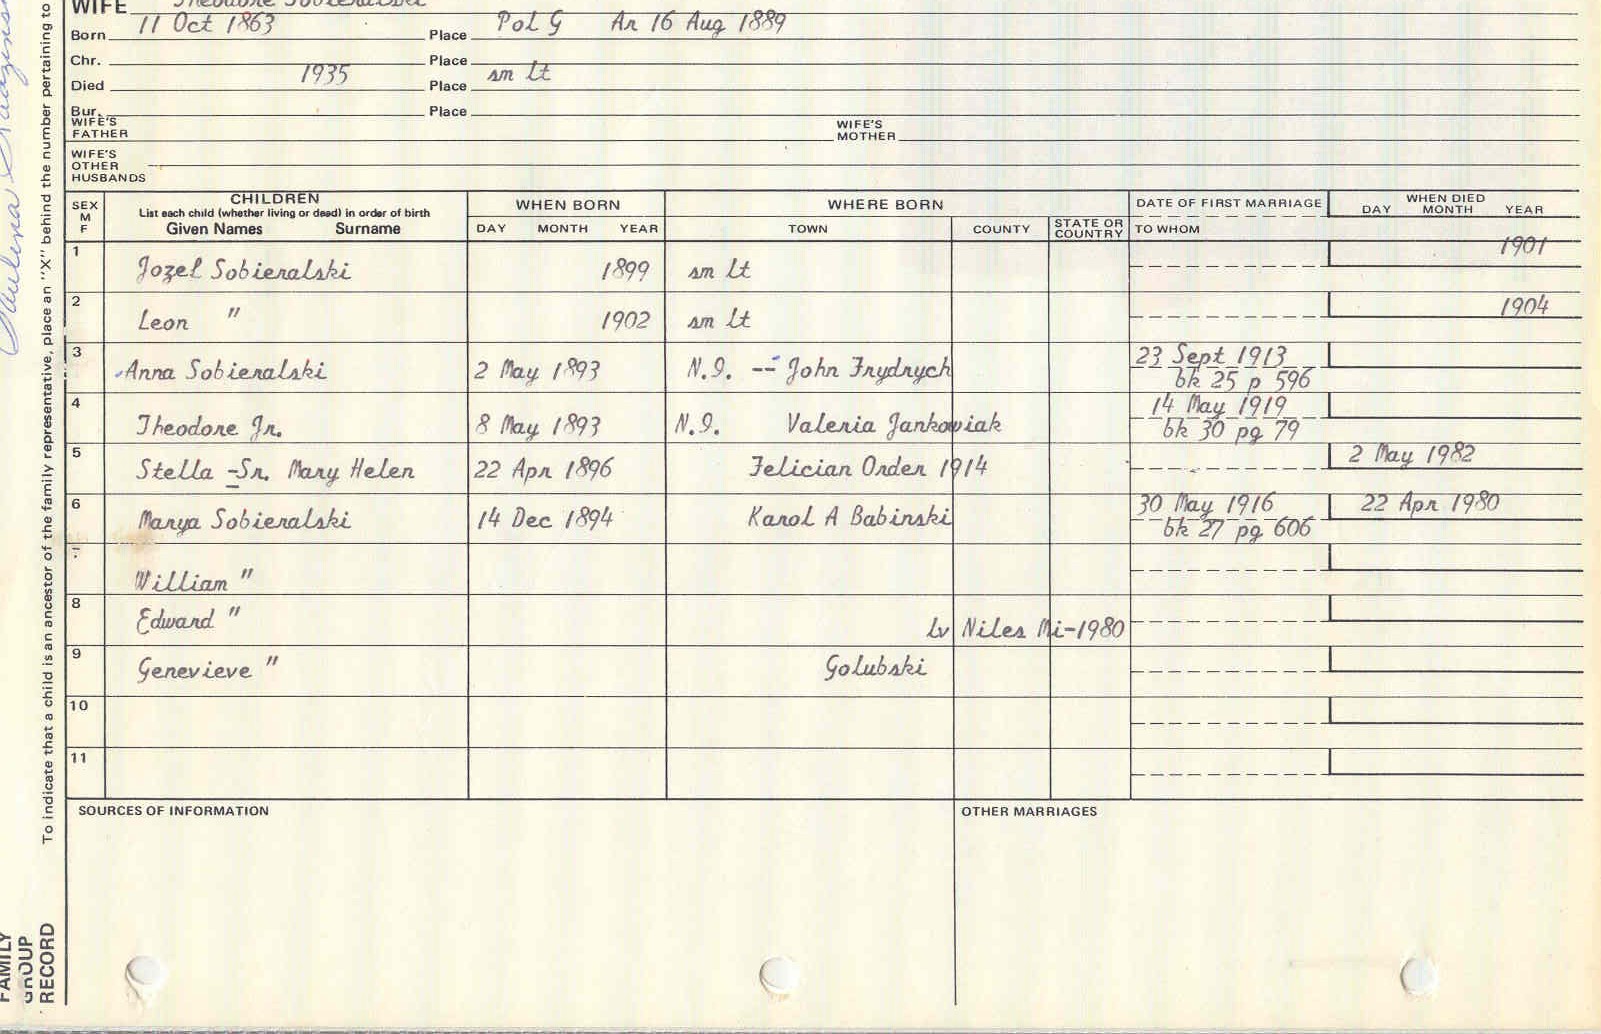 WIFE Theodore Sobieralski
Born 11 Oct 1863 Place Pol G Ar 16 Aug 1889
Chr. Place
Died 1935 Place sm lt
Bur. Place
WIFE'S FATHER WIFE'S MOTHER
WIFE'S OTHER HUSBANDS
SEX M F CHILDREN WHEN BORN WHERE BORN DATE OF FIRST MARRIAGE WHEN DIED
List each child (whether living or dead) in order of birth DAY MONTH YEAR
Given Names Surname DAY MONTH YEAR TOWN COUNTY STATE OR COUNTRY TO WHOM
1 Jozef Sobieralski 1899 sm lt 1901
2 Leon " 1902 sm lt 1904
3 Anna Sobieralski 2 May 1893 N.I. -- John Frydrych 23 Sept 1913
bk 25 p 596
4 Theodore Jr. 8 May 1893 N.I. Valeria Jankowiak 14 May 1919
bk 30 pg 79
5 Stella - Sr. Mary Helen 22 Apr 1896 Felician Order 1914 2 May 1982
6 Marya Sobieralski 14 Dec 1894 Karol A Babinski 30 May 1916 22 Apr 1980
bk 27 pg 606
7 William "
8 Edward " Lv Niles Mi-1980
9 Genevieve " Golubski
10
11
SOURCES OF INFORMATION OTHER MARRIAGES
To indicate that a child is an ancestor of the family representative, place an "X" behind the number pertaining to
FAMILY
GROUP
RECORD